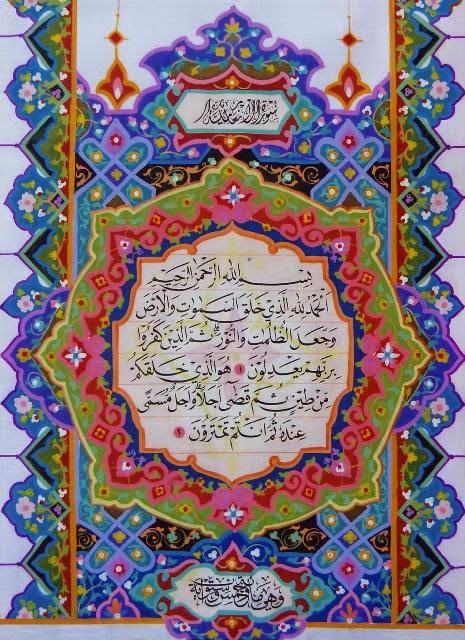 سورة الأنعام
بسم الله الرحمن الرحيم
الحمد لله الذي خلق السموت والأرض
وجعل الظلمت والنور ثم الذين كفروا
بربهم يعدلون ١ هو الذي خلقكم
من طين ثم قضى أجلا وأجل مسمى
عنده ثم أنتم تمترون ٢
وهي مائة وخمس وستون آية